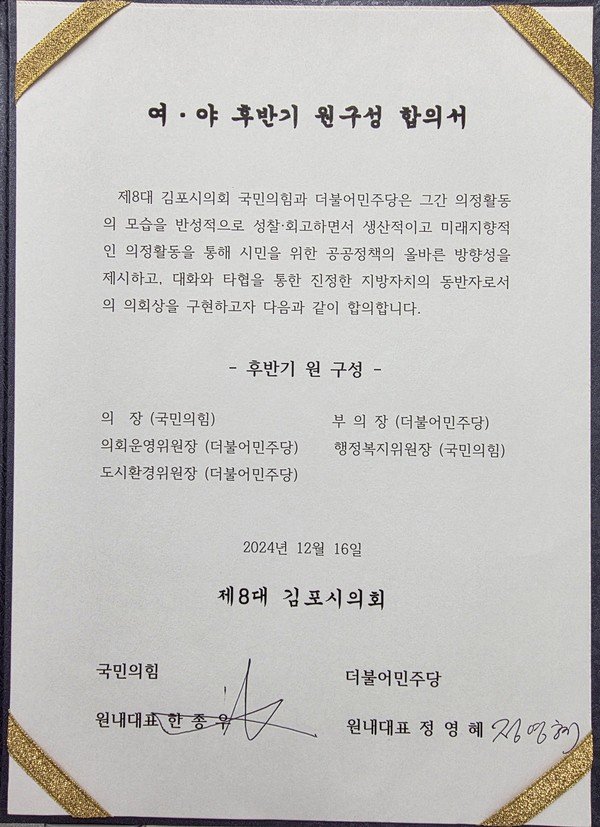 여·야 후반기 원구성 합의서
제8대 김포시의회 국민의힘과 더불어민주당은 그간 의정활동
의 모습을 반성적으로 성찰·회고하면서 생산적이고 미래지향적
인 의정활동을 통해 시민을 위한 공공정책의 올바른 방향성을
제시하고, 대화와 타협을 통한 진정한 지방자치의 동반자로서
의 의회상을 구현하고자 다음과 같이 합의합니다.
- 후반기 원 구성 -
의 장 (국민의힘) 부 의 장 (더불어민주당)
의회운영위원장 (더불어민주당) 행정복지위원장 (국민의힘)
도시환경위원장 (더불어민주당)
2024년 12월 16일
제8대 김포시의회
국민의힘 더불어민주당
원내대표 한 종 우 원내대표 정 영 혜 정영혜